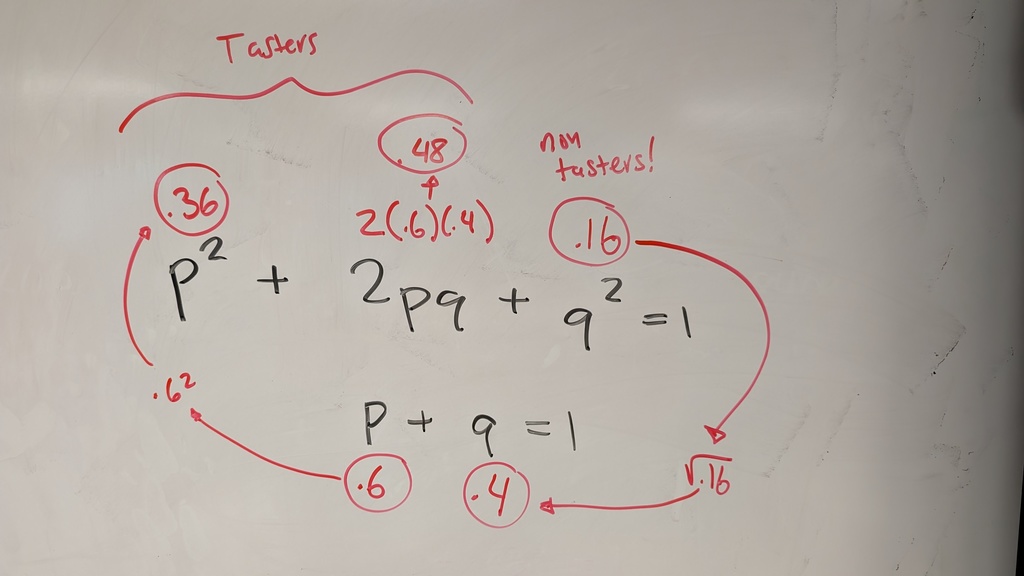 Tasters
.48
non
tasters!
.36
2(.6)(.4)
.16
p² + 2pq + q² = 1
.6²
p + q = 1
.6
.4
√.16